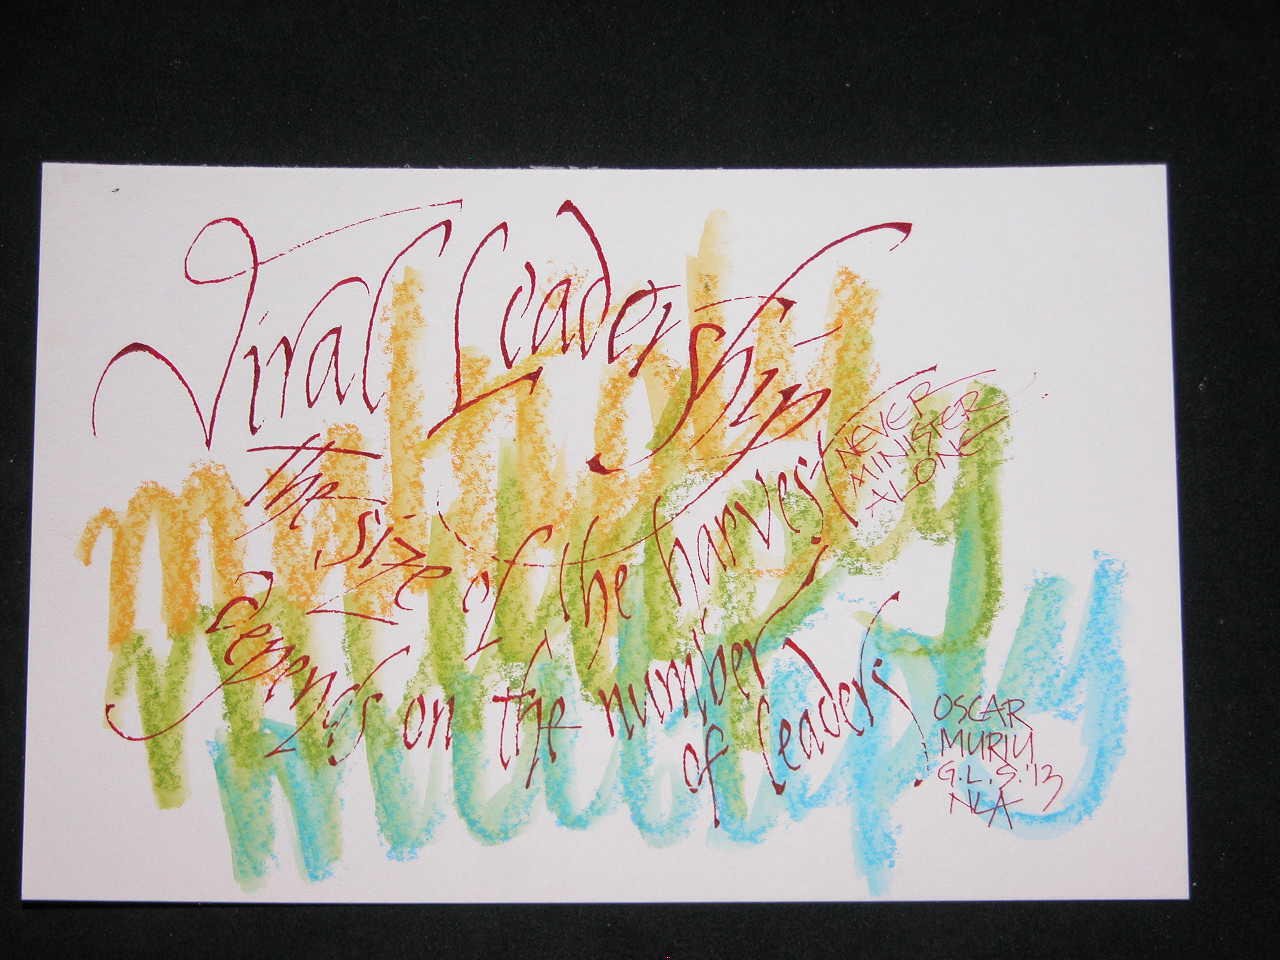 Viral Leadership
NEVER
MINISTER
ALONE
the size of the harvest
depends on the number
of leaders
OSCAR
MURIU
G.L.S.'13
NLA
multiply
multiply
multiply